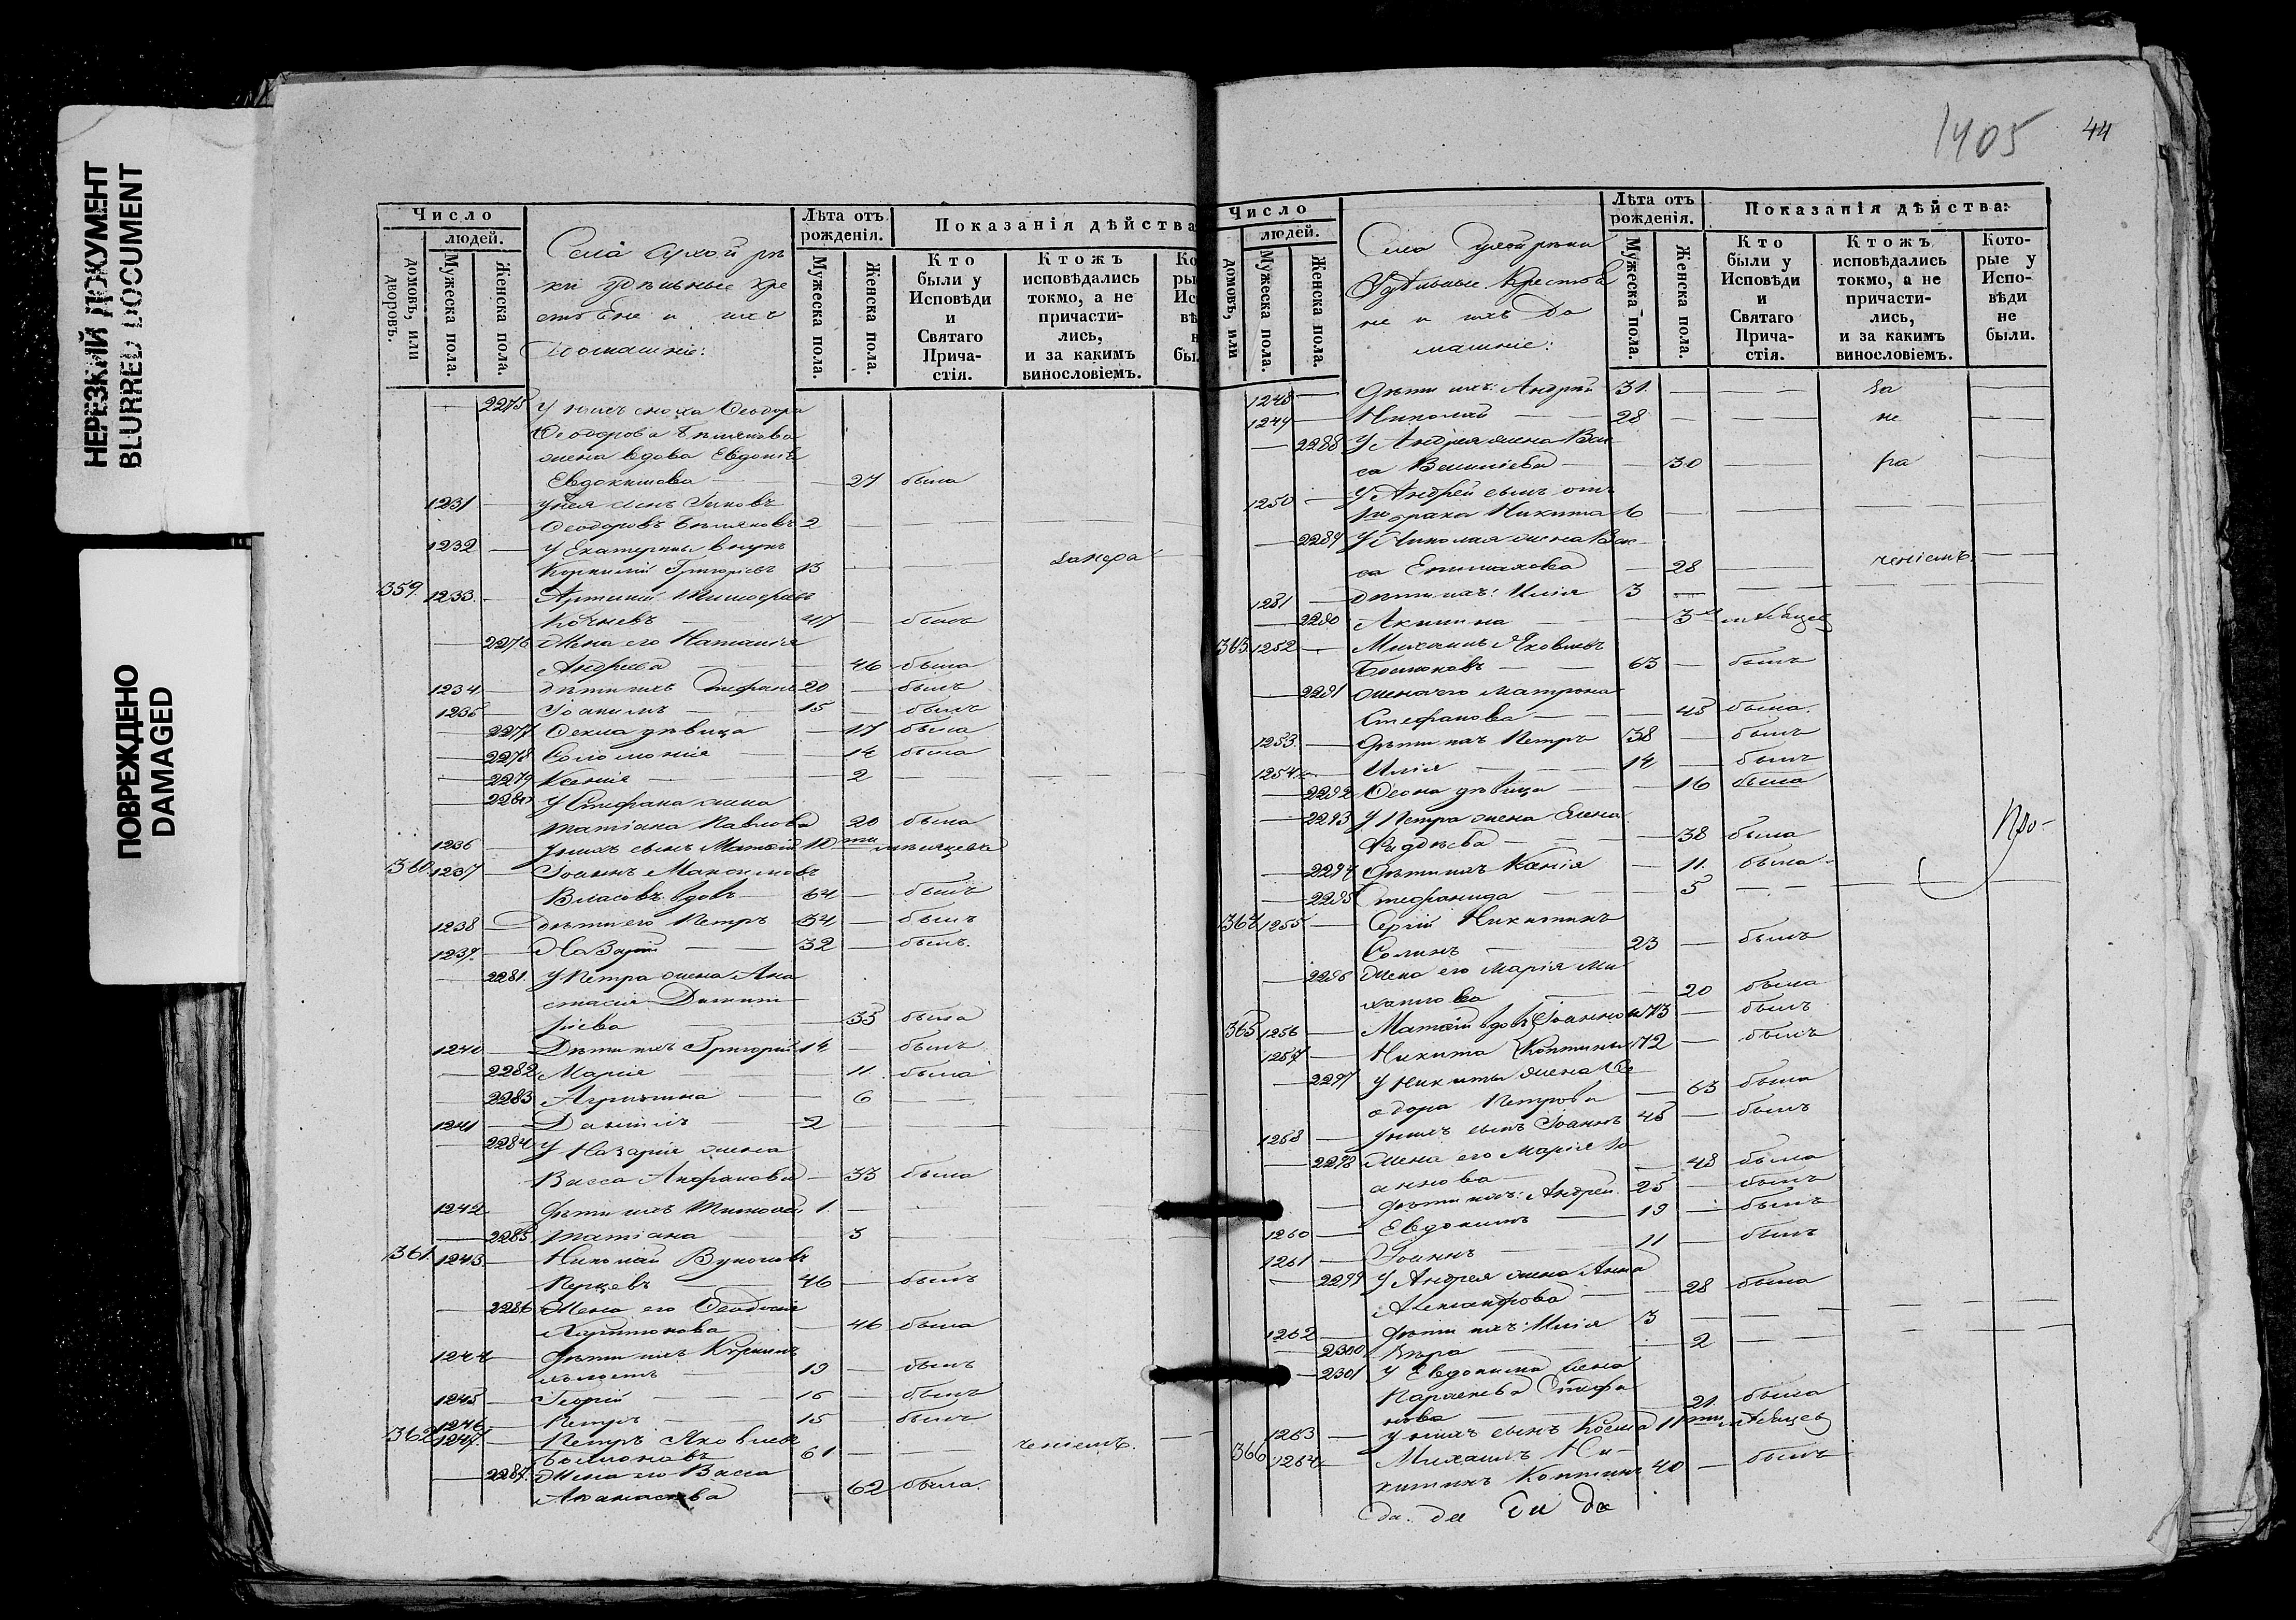 НЕРЕЗКИЙ ДОКУМЕНТ
BLURRED DOCUMENT
ПОВРЕЖДЕНО
DAMAGED
Число
людей.
домовъ, или дворовъ.
Мужеска пола.
Женска пола.
Села Сухой рѣ
ки удѣльные кре
стьяне и ихъ
домашніе:
Лѣта отъ рожденія.
Мужеска пола.
Женска пола.
Показанія дѣйства
Кто были у Исповѣди и Святаго Прича- стія.
Ктожъ исповѣдались токмо, а не причасти- лись, и за какимъ винословіемъ.
2275 У нихъ сноха Ѳеодора
Ѳеодорова
жена вдова Евдокія
Евдокимова — 27 была
1231 — У нея сынъ Іаковъ
Ѳеодоровъ 2 —
1232 — У Екатерины внукъ
Григорьевъ 13 — —
359. 1233 — Артемій Тимоѳеевъ
Кочневъ 47 — былъ
2276 Жена его Наталія
Андреева — 46 была
1234 — дѣти ихъ Стефанъ 20 — былъ
1235 — Іоакимъ — 15 — былъ
2277 Ѳекла дѣвица — 17 была
2278 Соломонія — 14 была
2279 Ксенія — 2 —
2280 У Стефана жена
Татіана Павлова 20 была
1236 — У нихъ сынъ Матѳей 10ти мѣсяцевъ
360 1237 — Іоаннъ Максимовъ
Власовъ вдовъ 64 — былъ
1238 — дѣти его Петръ 34 — былъ
1239 — Назарій — 32 — былъ.
2281 У Петра жена Ана
стасія Димит
ріева — 33 была
1240 — Дѣти ихъ Григорій 14 — былъ
2282 Марія — 11 была
2283 Агрипина — 6 —
1241 — Даніилъ — 2 —
2284 У Назарія жена
Васса Анфракова — 33 была
1242 — Дѣти ихъ Тимоѳей 1. —
2285 Татіана — 3 —
361 1243 — Николай Вуколовъ
Перцевъ 46 — былъ
2286 Жена его Ѳеодосія
Харитонова — 46 была
1244 — Дѣти ихъ
19 — былъ
1245 — Георгій — 16 — былъ
1246 — Петръ — 15 — былъ
362 1247 — Петръ Яковлевъ
61 — — ченіемъ.
2287 Жена его Васса
— 62 была.
1405
44
Число
людей.
домовъ, или
Мужеска пола.
Женска пола.
Села Сухой рѣки
Удѣльные Крестья
не и ихъ До
машніе:
Лѣта отъ рожденія.
Мужеска пола.
Женска пола.
Показанія дѣйства:
Кто были у Исповѣди и Святаго Прича- стія.
Ктожъ исповѣдались токмо, а не причасти- лись, и за какимъ винословіемъ.
Кото- рые у Испо- вѣди не были.
1248 — Дѣти ихъ: Андрей 31 — — За —
1249 — Николай — 28 — — не —
2288 У Андрея жена Вас
са — 30 — ра —
1250 — У Андрея сынъ отъ
1го брака Никита 6 —
2289 У Николая жена Вас
са Епимахова — 28 — ченіемъ. —
1251 — Дѣти ихъ: Илія 3 —
2290 Акилина — 3 мѣсяцев
363 1252 — Михаилъ Яковлевъ
63 — былъ
2291 Жена его Матрона
Стефанова — 48 была.
1253 — Дѣти ихъ Петръ 38 — былъ
1254 — Илія — 14 — былъ
2292 дѣвица — 16 была
2293 У Петра жена Елена
— 38 была
2294 Дѣти ихъ Ксенія — 11. была Про-
2295 Стефанида — 5 —
364 1255 — Сергій Никитинъ
23 — былъ
2296 Жена его Марія Ми
хаилова — 20 была
365 1256 — Матѳей вдовъ Іоанновъ 73 — былъ
1257 — Никита Коптинъ 72 — былъ
2297 У Никиты жена Ѳе
одора Петрова — 63 была
1258 — У нихъ сынъ Іоаннъ 48 — былъ
2298 Жена его Марія Іо
аннова — 48 была
— Дѣти ихъ: Андрей 25 — былъ
1260 — Евдокимъ — 19 — былъ
1261 — Іоаннъ — 11 — былъ
2299 У Андрея жена Анна
Александрова — 28 была
1262 — Дѣти ихъ: Илія 3 —
2300 Вѣра — 2 —
2301 У Евдокима жена
Параскева Стефа
нова — 21. была
1263 — У нихъ сынъ Косма 11ти мѣсяцев
366 1264 — Михаилъ Ни-
китинъ Коптинъ 40 — былъ
да. да Ти да